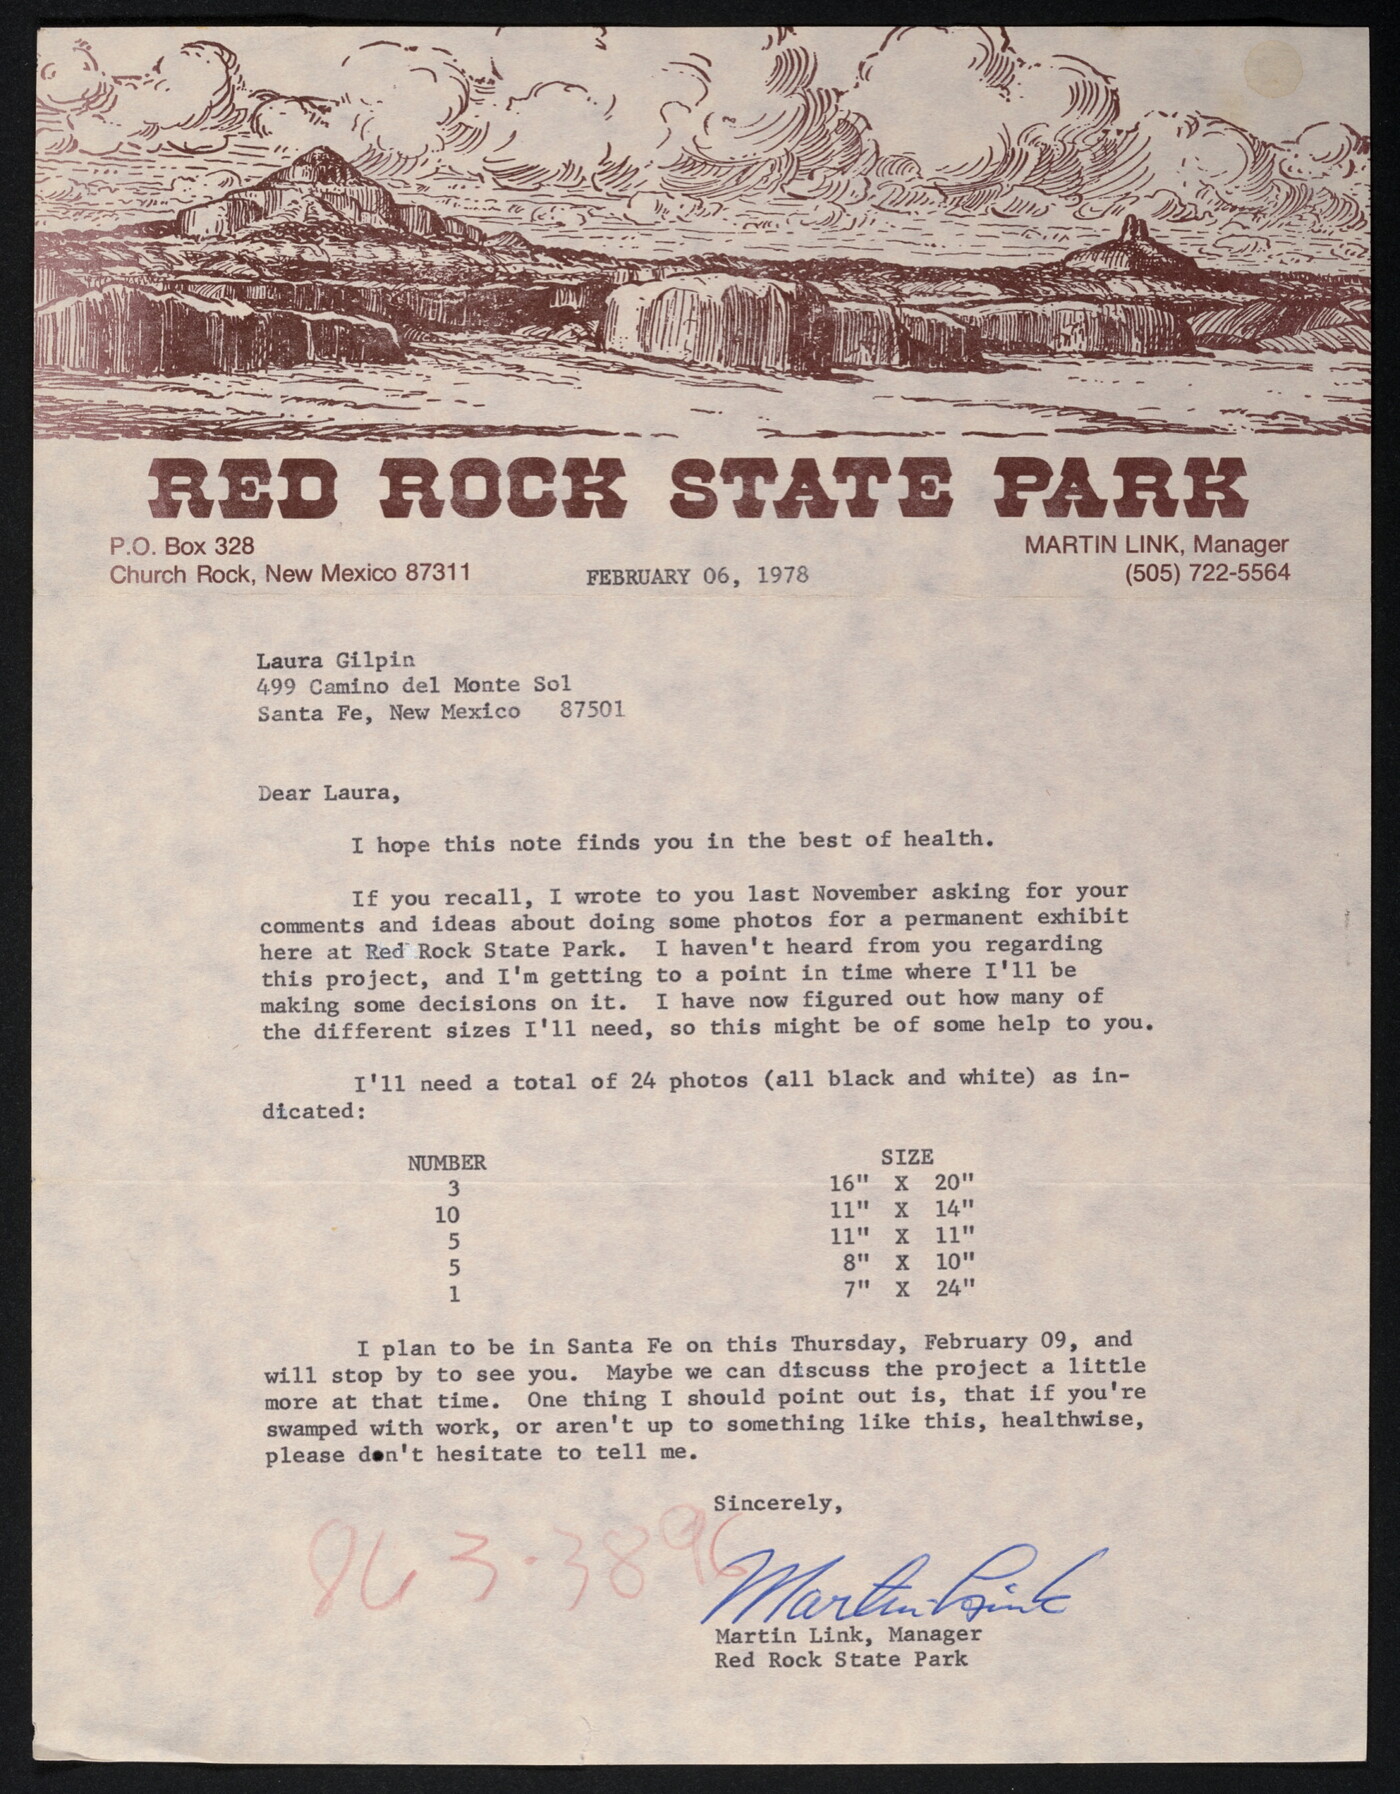 RED ROCK STATE PARK
P.O. Box 328
Church Rock, New Mexico 87311
MARTIN LINK, Manager
(505) 722-5564
FEBRUARY 06, 1978
Laura Gilpin
499 Camino del Monte Sol
Santa Fe, New Mexico 87501
Dear Laura,
I hope this note finds you in the best of health.
If you recall, I wrote to you last November asking for your
comments and ideas about doing some photos for a permanent exhibit
here at Red Rock State Park. I haven't heard from you regarding
this project, and I'm getting to a point in time where I'll be
making some decisions on it. I have now figured out how many of
the different sizes I'll need, so this might be of some help to you.
I'll need a total of 24 photos (all black and white) as in-
dicated:
NUMBER SIZE
3 16" X 20"
10 11" X 14"
5 11" X 11"
5 8" X 10"
1 7" X 24"
I plan to be in Santa Fe on this Thursday, February 09, and
will stop by to see you. Maybe we can discuss the project a little
more at that time. One thing I should point out is, that if you're
swamped with work, or aren't up to something like this, healthwise,
please don't hesitate to tell me.
Sincerely,
863-3896
Martin Link
Martin Link, Manager
Red Rock State Park